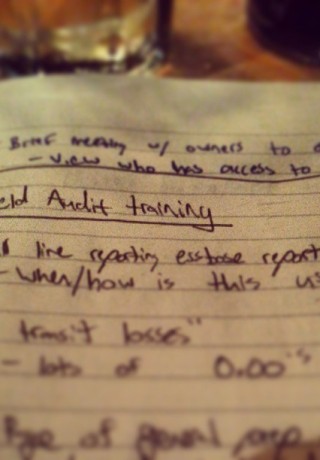 Brief meeting w/ owners to
- view who has access to
eld Audit training
line reporting essbase report
- when/how is this us
transit losses"
- lots of 0.00's
of general